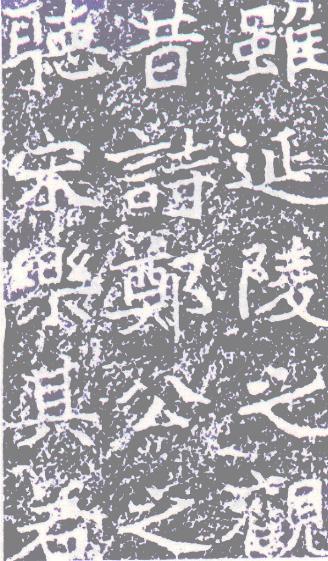 雖延陵之觀
昔詩鄭公之
聽宋樂其若